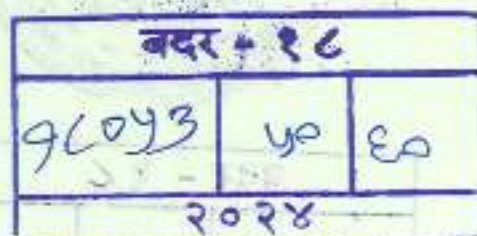 बदर - १८
१८०५३ ५० ६०
२०२४